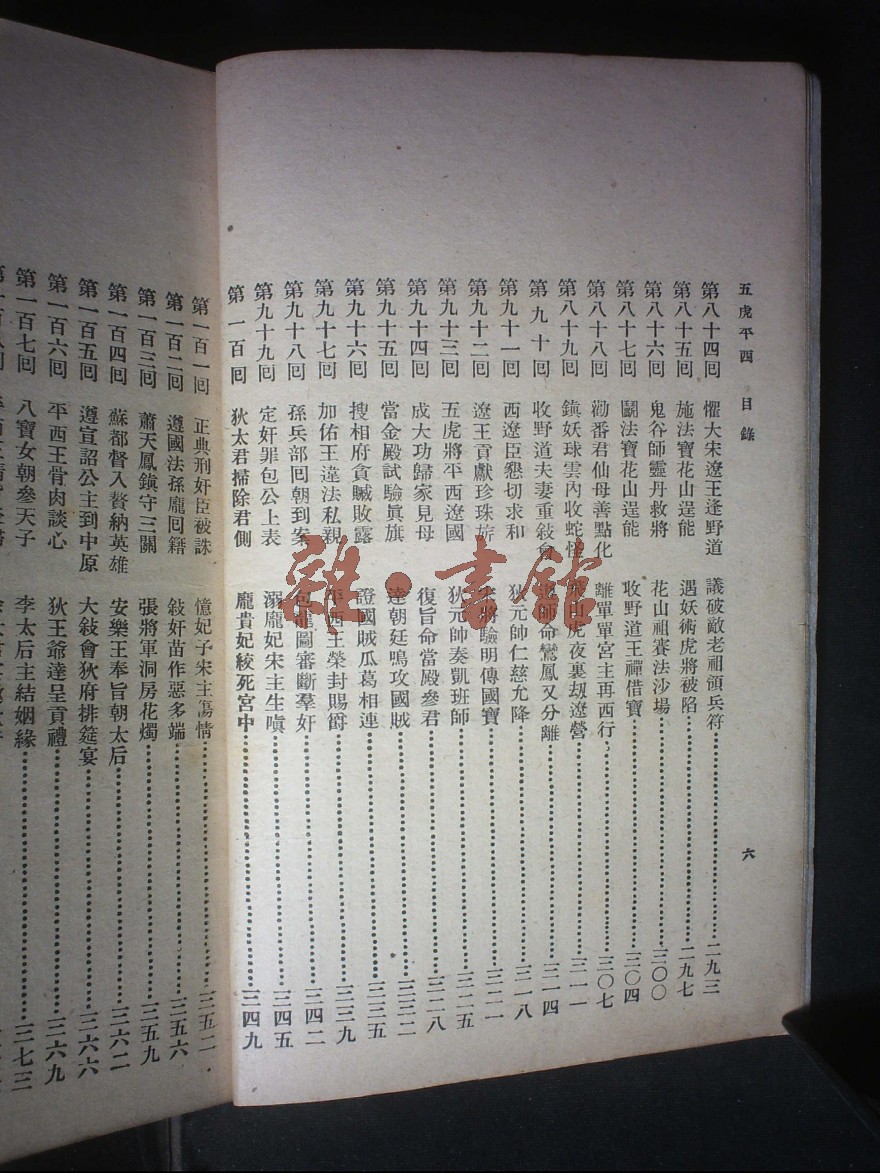 五虎平西 目錄 六
第八十四回 懼大宋遼王逢野道 議破敵老祖領兵符 二九三
第八十五回 施法寶花山逞能 遇妖術虎將被陷 二九七
第八十六回 鬼谷師靈丹救將 花山祖賽法沙場 三〇〇
第八十七回 鬪法寶花山逞能 收野道王禪借寶 三〇四
第八十八回 勸番君仙母善點化 離單單宮主再西行 三〇七
第八十九回 鎮妖球雲內收蛇怪 山虎夜裏刼遼營 三一一
第九十回 收野道夫妻重敍會 師命鸞鳳又分離 三一四
第九十一回 西遼臣懇切求和 狄元帥仁慈允降 三一八
第九十二回 遼王貢獻珍珠旂 宋將驗明傳國寶 三二一
第九十三回 五虎將平西遼國 狄元帥奏凱班師 三二五
第九十四回 成大功歸家見母 復旨命當殿參君 三二八
第九十五回 當金殿試驗眞旗 達朝廷鳴攻國賊 三三二
第九十六回 搜相府貪贓敗露 證國賊瓜葛相連 三三五
第九十七回 加佑王違法私親 平西王榮封賜爵 三三九
第九十八回 孫兵部回朝到案 包龍圖審斷羣奸 三四二
第九十九回 定奸罪包公上表 溺龐妃宋主生嗔 三四五
第一百回 狄太君掃除君側 龐貴妃絞死宮中 三四九
第一百一回 正典刑奸臣被誅 憶妃子宋主傷情 三五二
第一百二回 遵國法孫龐回籍 敍奸苗作惡多端 三五六
第一百三回 蕭天鳳鎮守三關 張將軍洞房花燭 三五九
第一百四回 蘇都督入贅納英雄 安樂王奉旨朝太后 三六二
第一百五回 遵宣詔公主到中原 大敍會狄府排筵宴 三六六
第一百六回 平西王骨肉談心 狄王爺達呈貢禮 三六九
第一百七回 八寶女朝參天子 李太后主結姻緣 三七三
雜·書館